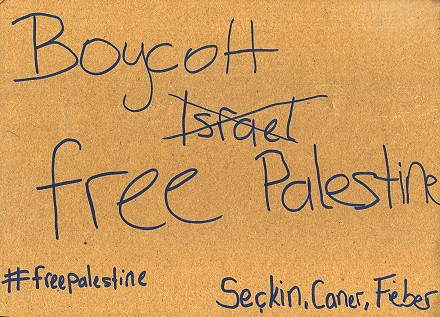 Boycott
Israel
free Palestine
#freepalestine
Seçkin, Caner, Feber